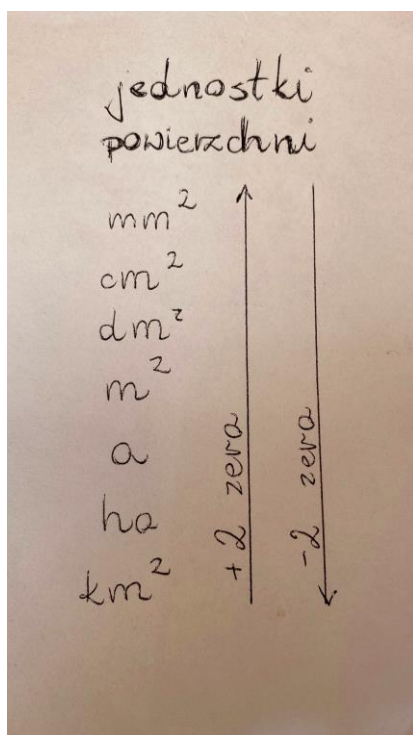 jednostki
powierzchni
mm²
cm²
dm²
m²
a
ha
km²
+2 zera
-2 zera